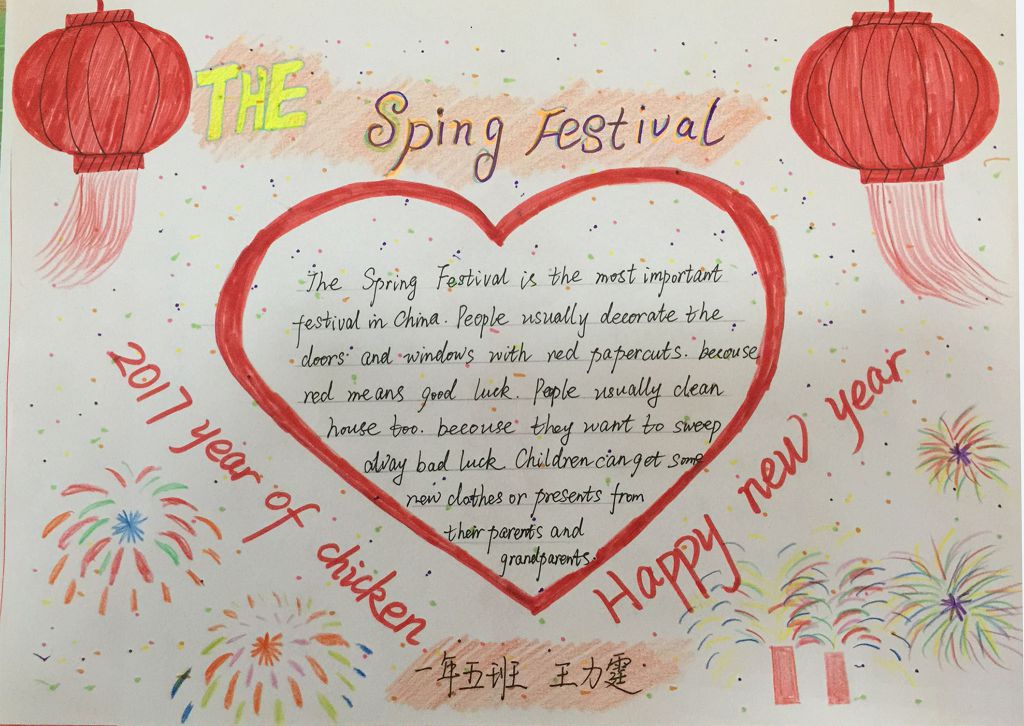 THE Sping Festival
The Spring Festival is the most important
festival in China. People usually decorate the
doors and windows with red papercuts. becouse
red means good luck. Peple usually clean
house too. becouse they want to sweep
away bad luck Children can get some
new clothes or presents from
their parents and
grandparents.
2017 year of chicken
Happy new year
一年五班 王力霆